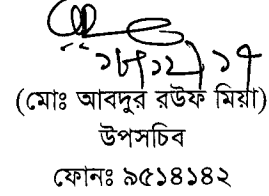 ১৮/১২/১৭
(মোঃ আবদুর রউফ মিয়া)
উপসচিব
ফোনঃ ৯৫১৪১৪২